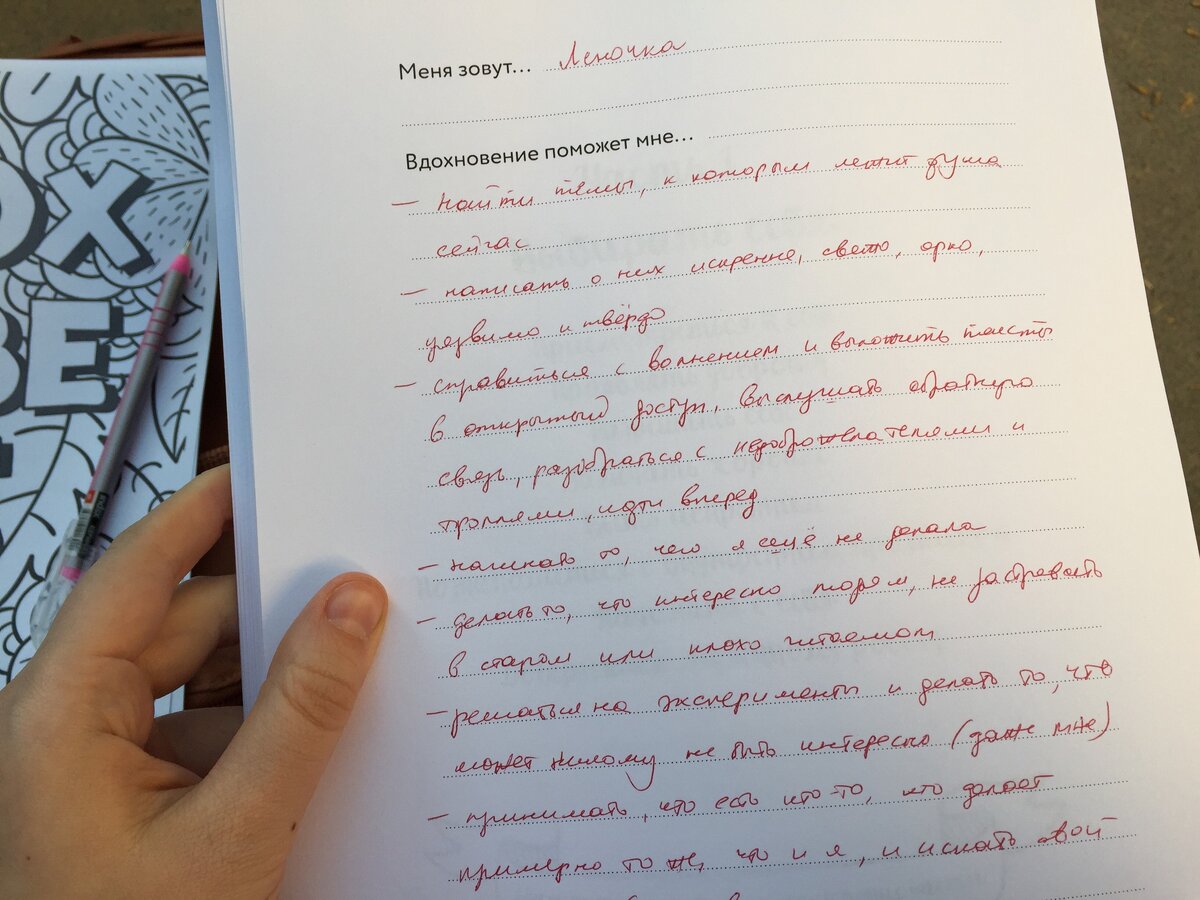 ОХ
ВЕ
Меня зовут... Леночка
Вдохновение поможет мне...
– найти темы, к которым лежит душа
сейчас
– написать о них искренне, светло, ярко,
уязвимо и твёрдо
– справиться с волнением и выложить тексты
в открытый доступ, выслушать обратную
связь, разобраться с недоброжелателями и
троллями, идти вперед
– начинаю то, чего я ещё не делала
– делать то, что интересно людям, не застревать
в старом или плохо читаемом
– решаться на эксперименты и делать то, что
может никому не быть интересно (даже мне)
– принимать, что есть кто-то, кто делает
примерно то же, что и я, и искать свой